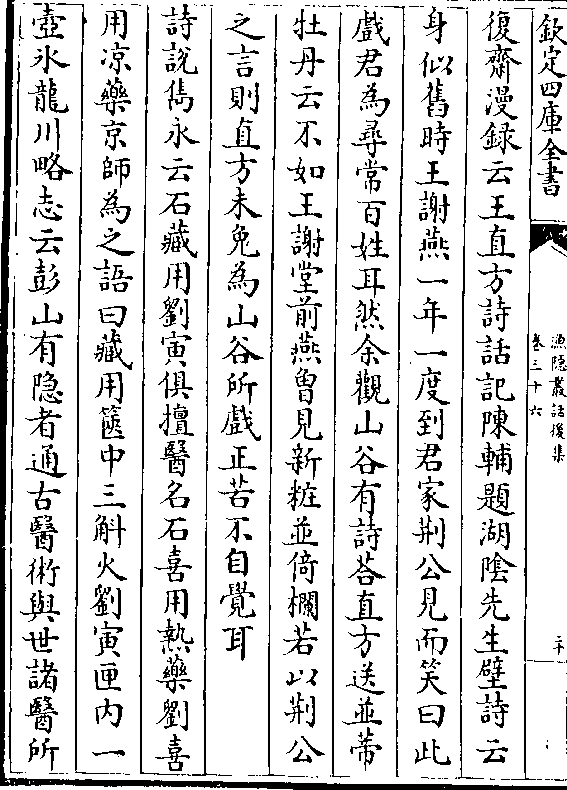 欽定四庫全書
漁隱叢話後集
卷三十六
二十
復齋漫録云王直方詩話記陳輔題湖隂先生壁詩云
身似舊時王謝燕一年一度到君家荆公見而笑曰此
戲君為尋常百姓耳然余觀山谷有詩荅直方送並蒂
牡丹云不如王謝堂前燕曾見新粧並倚欄若以荆公
之言則直方未免為山谷所戲正苦不自覺耳
詩說雋永云石藏用劉寅俱擅醫名石喜用熱藥劉喜
用凉藥京師為之語曰藏用篋中三斛火劉寅匣内一
壺氷龍川略志云彭山有隐者通古醫術與世諸醫所